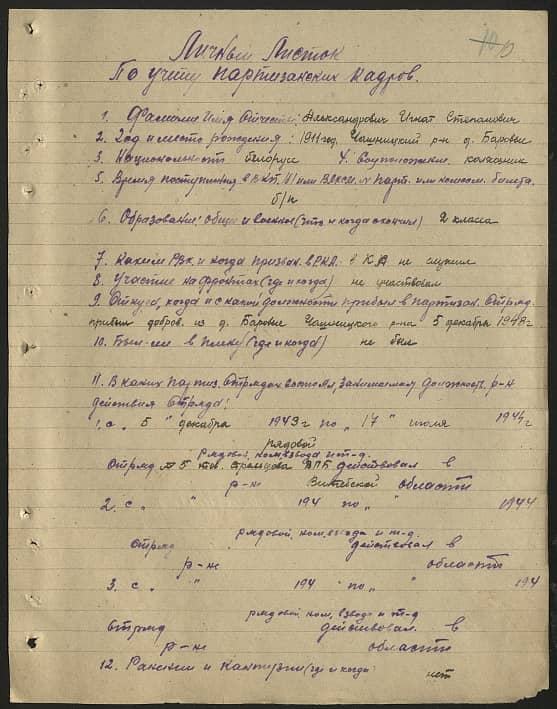 10
Личный Листок
По учету партизанских кадров.
1. Фамилия Имя Отчество: Александрович Игнат Степанович
2. Год и место рождения: 1911 год, Чашницкий р-н д. Баровье
3. Национальность белорус 4. Соцположение колхозник
5. Время поступления в ВКП/б/ или ВЛКСМ. № парт. или комсом. билета.
б/п
6. Образование: общее и военное (что и когда окончил) 2 класса
7. Каким РВК. и когда призван в РККА. в КА не служил
8. Участие на фронтах (где и когда) не участвовал
9. Откуда, когда и с какой должности прибыл в партизан. Отряд.
прибыл добров. из д. Баровье Чашницкого р-на 5 декабря 1943 г
10. Был-ли в плену (где и когда) не был
11. В каких партиз. Отрядах состоял, занимаемая должность, р-н
действия Отряда:
1. с " 5 " декабря 1943 г по " 17 " июля 1944 г
рядовой
рядовой, ком. взвода и т-д.
Отряд № 5 тов. Стрельцова ВПБ действовал в
р-не Витебской области
2. с " " 194 по " " 1944
рядовой, ком, взвода и т-д.
Отряд действовал в
р-не области
3. с " " 194 по " " 194
рядовой, ком, взвода и т-д
Отряд действовал. в
р-не области
12. Ранения и Контузии (где и когда) нет